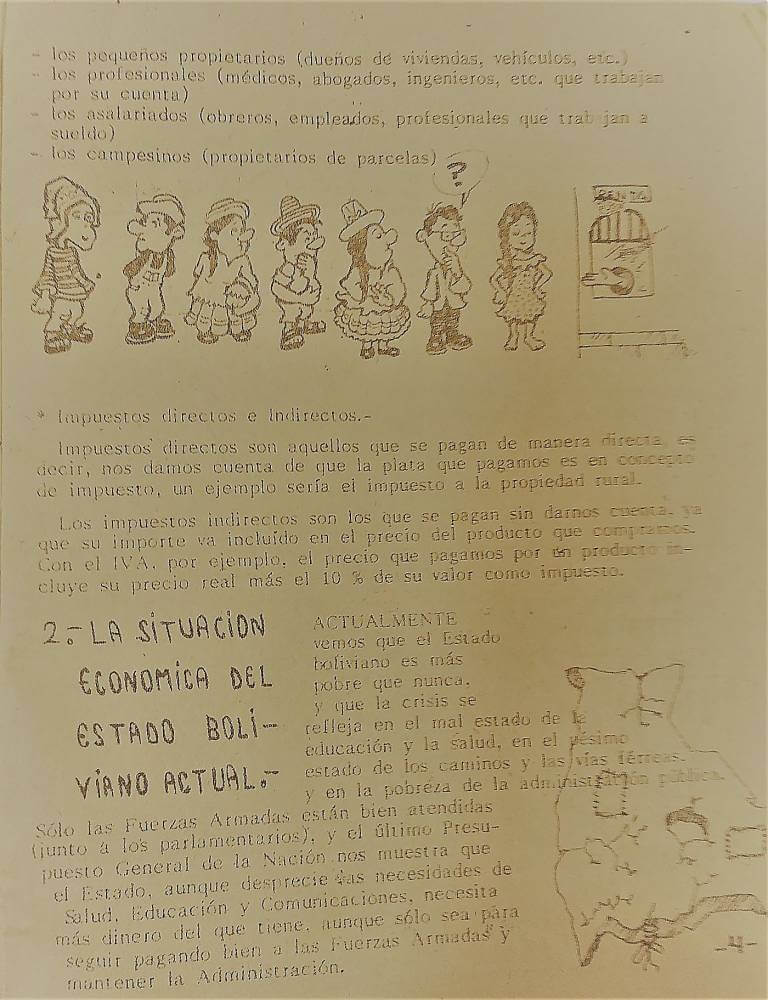 - los pequeños propietarios (dueños de viviendas, vehículos, etc.)
- los profesionales (médicos, abogados, ingenieros, etc. que trabajan
por su cuenta)
- los asalariados (obreros, empleados, profesionales que trab jan a
sueldo)
- los campesinos (propietarios de parcelas)
?
RENTA
* Impuestos directos e Indirectos.-
Impuestos directos son aquellos que se pagan de manera directa, es
decir, nos damos cuenta de que la plata que pagamos es en concepto
de impuesto, un ejemplo sería el impuesto a la propiedad rural.
Los impuestos indirectos son los que se pagan sin darnos cuenta, ya
que su importe va incluído en el precio del producto que compramos.
Con el IVA, por ejemplo, el precio que pagamos por un producto in-
cluye su precio real más el 10 % de su valor como impuesto.
2.- LA SITUACION
ECONOMICA DEL
ESTADO BOLI-
VIANO ACTUAL.-
ACTUALMENTE
vemos que el Estado
boliviano es más
pobre que nunca,
y que la crisis se
refleja en el mal estado de la
educación y la salud, en el pésimo
estado de los caminos y las vías férreas,
y en la pobreza de la administración pública.
Sólo las Fuerzas Armadas están bien atendidas
(junto a los parlamentarios), y el último Presu-
puesto General de la Nación nos muestra que
el Estado, aunque desprecie las necesidades de
Salud, Educación y Comunicaciones, necesita
más dinero del que tiene, aunque sólo sea para
seguir pagando bien a las Fuerzas Armadas y
mantener la Administración.
-4-